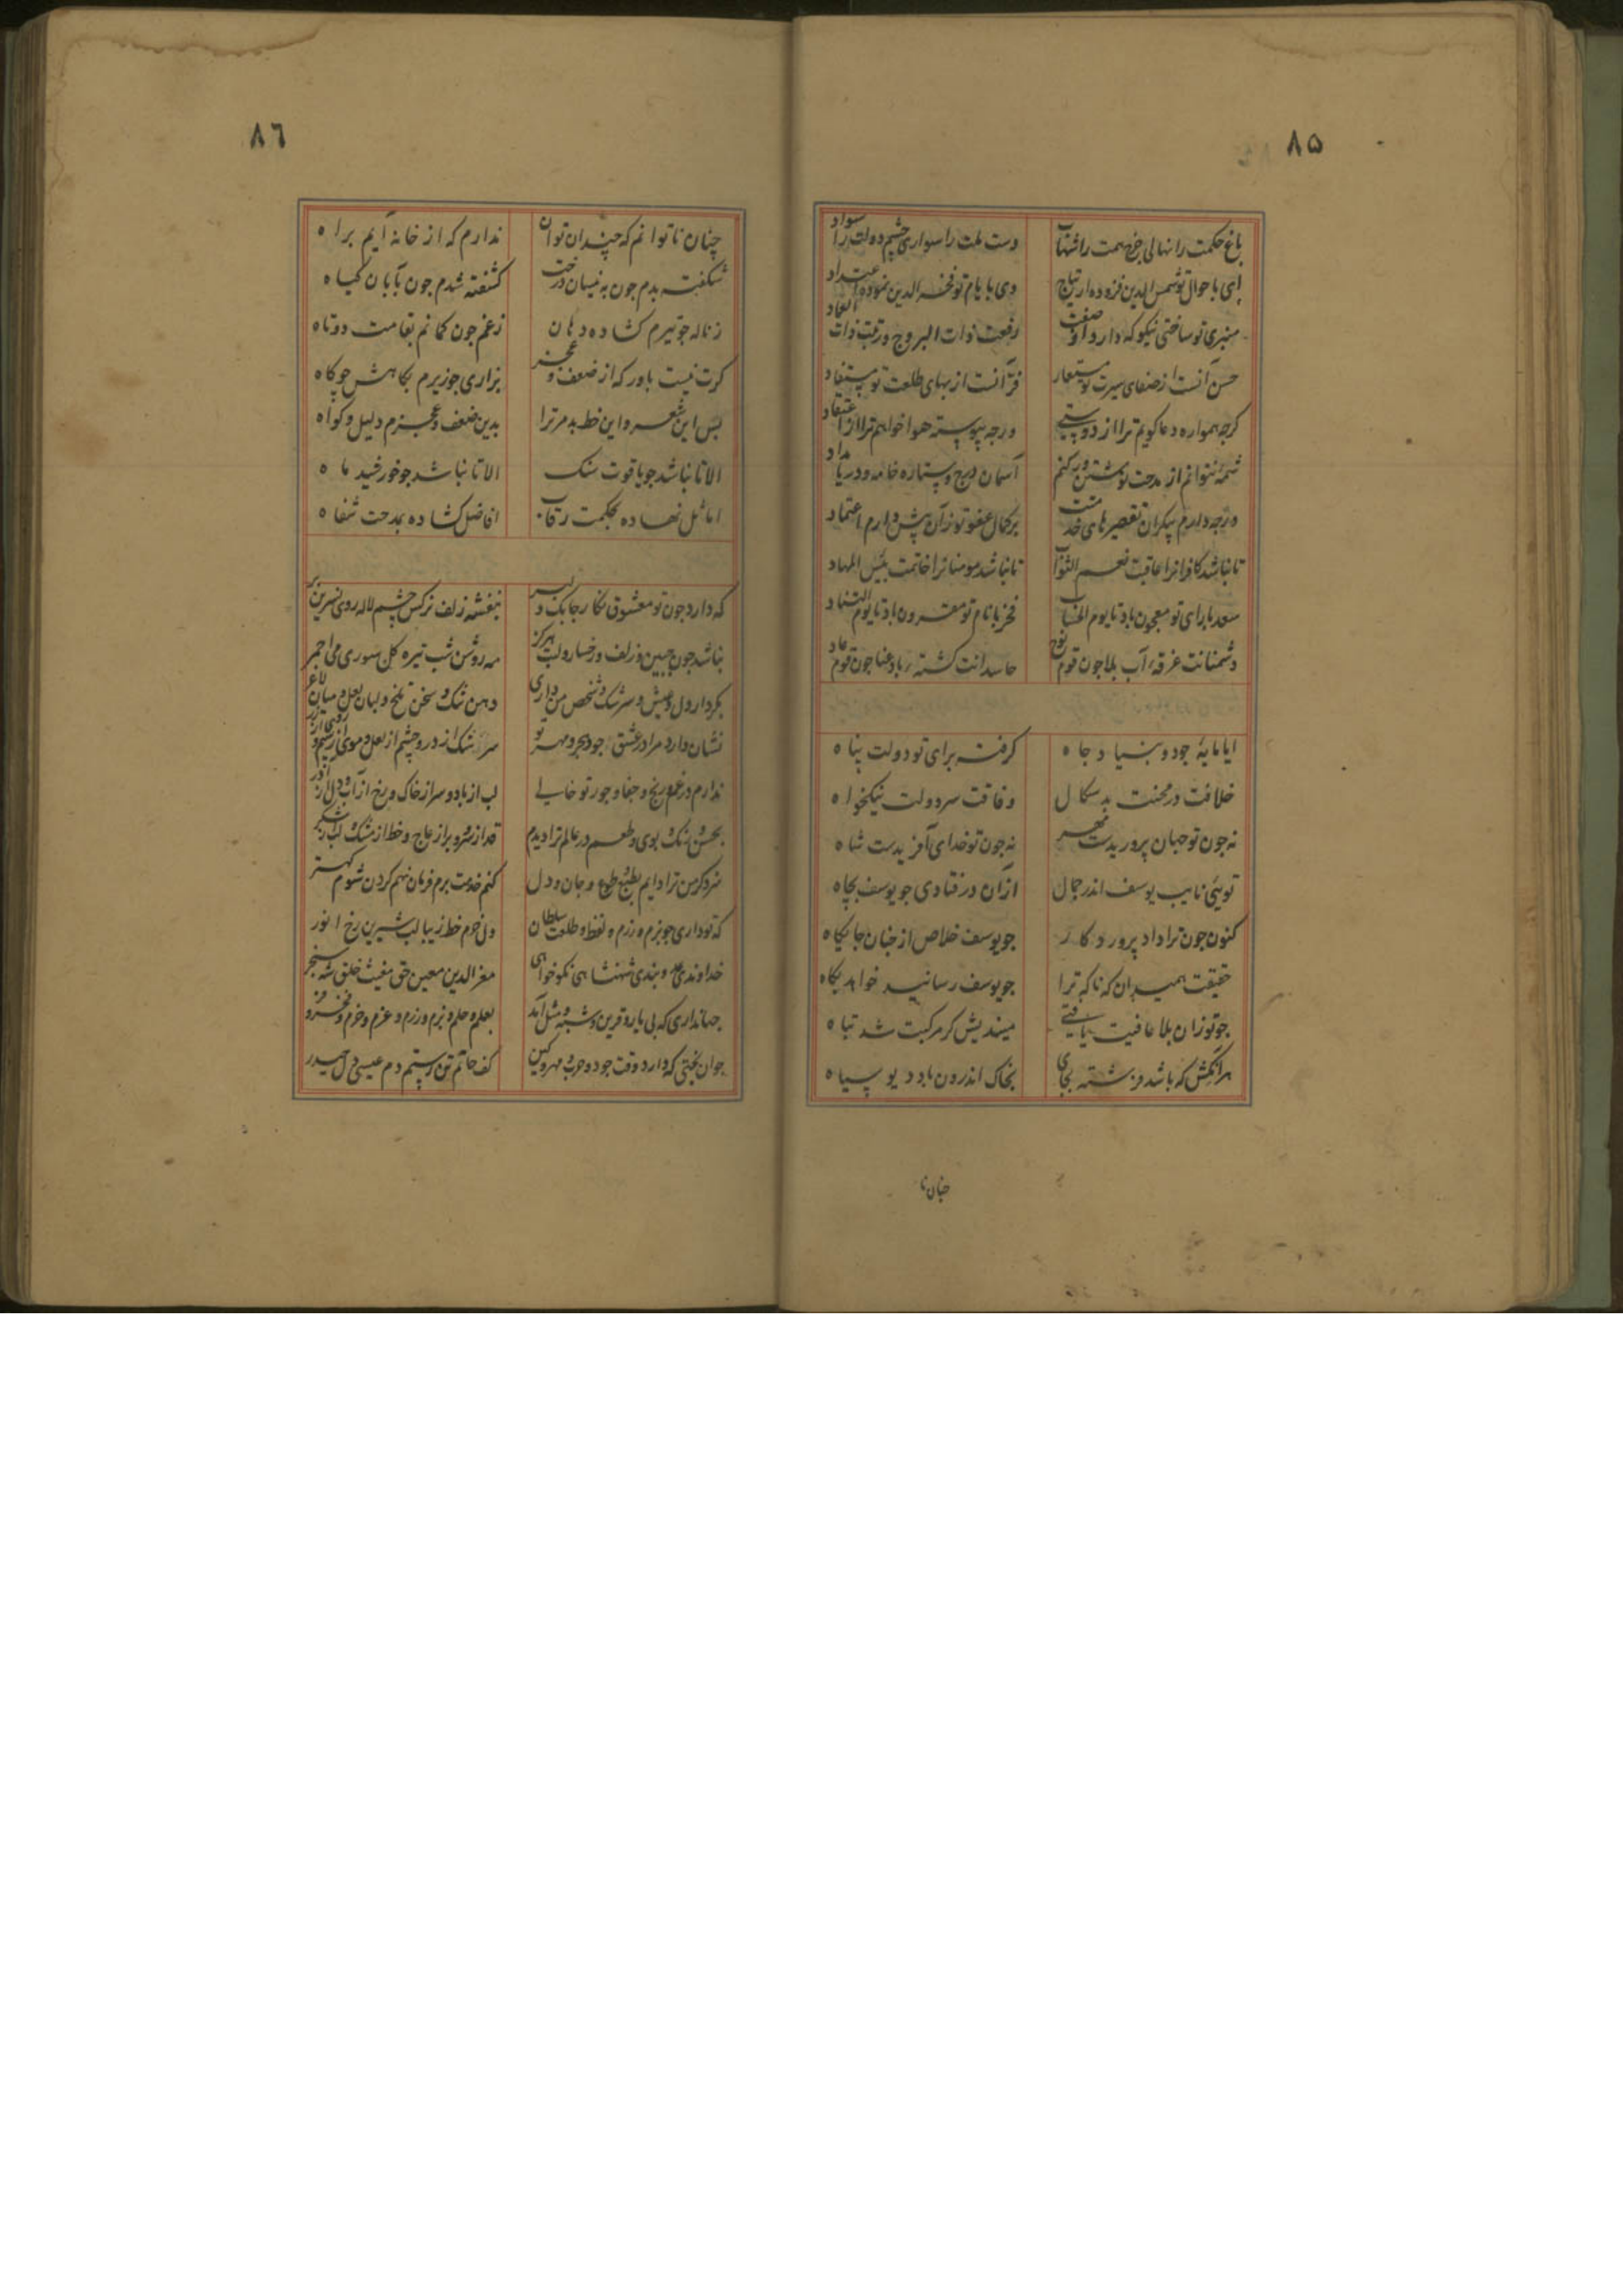 ۸۵
باغ حکمت را نهالی چرخ همت را شهاب دست ملت را سواری چشم دولت را سواد
ای باحوال تو شمس الدین فزوده ارتیاج وی بایام تو فخر الدین نموده اعتداد
منبری تو ساختی نیکو که دارد او صفت رفعت ذات البروج و زینت ذات العماد
حسن آنست از صفای سیرت تو مستعار فر آنست از بهای طلعت تو مستفاد
کرچه همواره دعا کویم ترا از دوستی ورچه پیوسته هوا خواهم ترا از اعتقاد
شمه نتوانم از مدحت نوشتن ور کنم آسمان درج و ستاره خامه و دریا مداد
ورچه دارم بیکران تقصیرهای خدمتت بر کمال عفو تو زان بیش دارم اعتماد
تا نباشد کافرانرا عاقبت نعم الثواب تا نباشد مومنانرا خاتمت بئس المهاد
سعد با رای تو معجون باد تا یوم الحساب فخر با نام تو مقرون باد تا یوم التناد
دشمنانت غرقه آب بلا جون قوم نوح حاسدانت کشته باد عنا جون قوم عاد
ایا مایۀ جود و بنیاد جاه کرفته برای تو دولت پناه
خلافت در محنت بدسکال وفاقت سر دولت نیکخواه
نه جون تو جهان پروریدست نه جون تو خدای آفریدست شاه
توئی نایب یوسف اندر جمال ازان در فتادی جو یوسف بچاه
کنون جون ترا داد پروردکار جو یوسف خلاص از جنان جایکاه
حقیقت همیدان که ناکه ترا جو یوسف رسانید خواهد بکاه
جو تو زان بلا عافیت یافتی میندیش کر مرکبت شد تباه
هر انکس که باشد فرشته بجای بخاک اندرون باد دیو سیاه
جنان نا
۸٦
چنان ناتوانم که چندان توان ندارم که از خانه آیم براه
شکفته بدم جون به نیسان درخت کشفته شدم جون بآبان کیاه
ز ناله جو تیرم کشاده دهان ز غم جون کمانم بقامت دوتاه
کرت نیست باور که از ضعف و عجز بزاری جو زیرم بکاهش جو کاه
بس این شعر و این خط بد مر ترا بدین ضعف و عجزم دلیل و کواه
الا تا نباشد جو یاقوت سنک الا تا نباشد جو خورشید ماه
اماثل نهاده بحکمت رقاب افاضل کشاده بمدحت شفاه
که دارد جون تو معشوق نکار چابک و دلبر بنفشه زلف نرکس چشم لاله روی نسرین بر
نباشد جون جبین و زلف و رخسار و لبت هرکز مه روشن شب تیره کل سوری می احمر
بکردار دل و عیش و سرشک و شخص من داری دهن تنک و سخن تلخ و لبان لعل و میان لاغر
نشان دارد مرا در عشق جود و هجر و مهر تو سرشک از در و چشم از لعل و موی از سیم و روی از زر
ندارم در غم و رنج و جفا و جور تو خالی لب از باد و سر از خاک و رخ از آب و دل از آذر
بحسن و رنک و بوی و طعم در عالم ترا دیدم قد از سرو و بر از عاج و خط از مشک و لب از شکر
سزد کر من ترا دایم بطبع و طوع و جان و دل کنم خدمت برم فرمان نهم کردن شوم کهتر
که تو داری جو بزم و رزم و لفظ و طلعت سلطان دل خرم خط زیبا لب شیرین رخ انور
خداوندی عدو بندی شهنشاهی نکوخواهی معز الدین معین حق مغیث خلق شه سنجر
جهانداری که بی یار و قرین و شبه و مثل آمد بعلم و حلم و بزم و رزم و عزم و حزم و فخر و فر
جوان بختی که دارد وقت جود و حرب و مهر و کین کف حاتم تن رستم دم عیسی دل حیدر